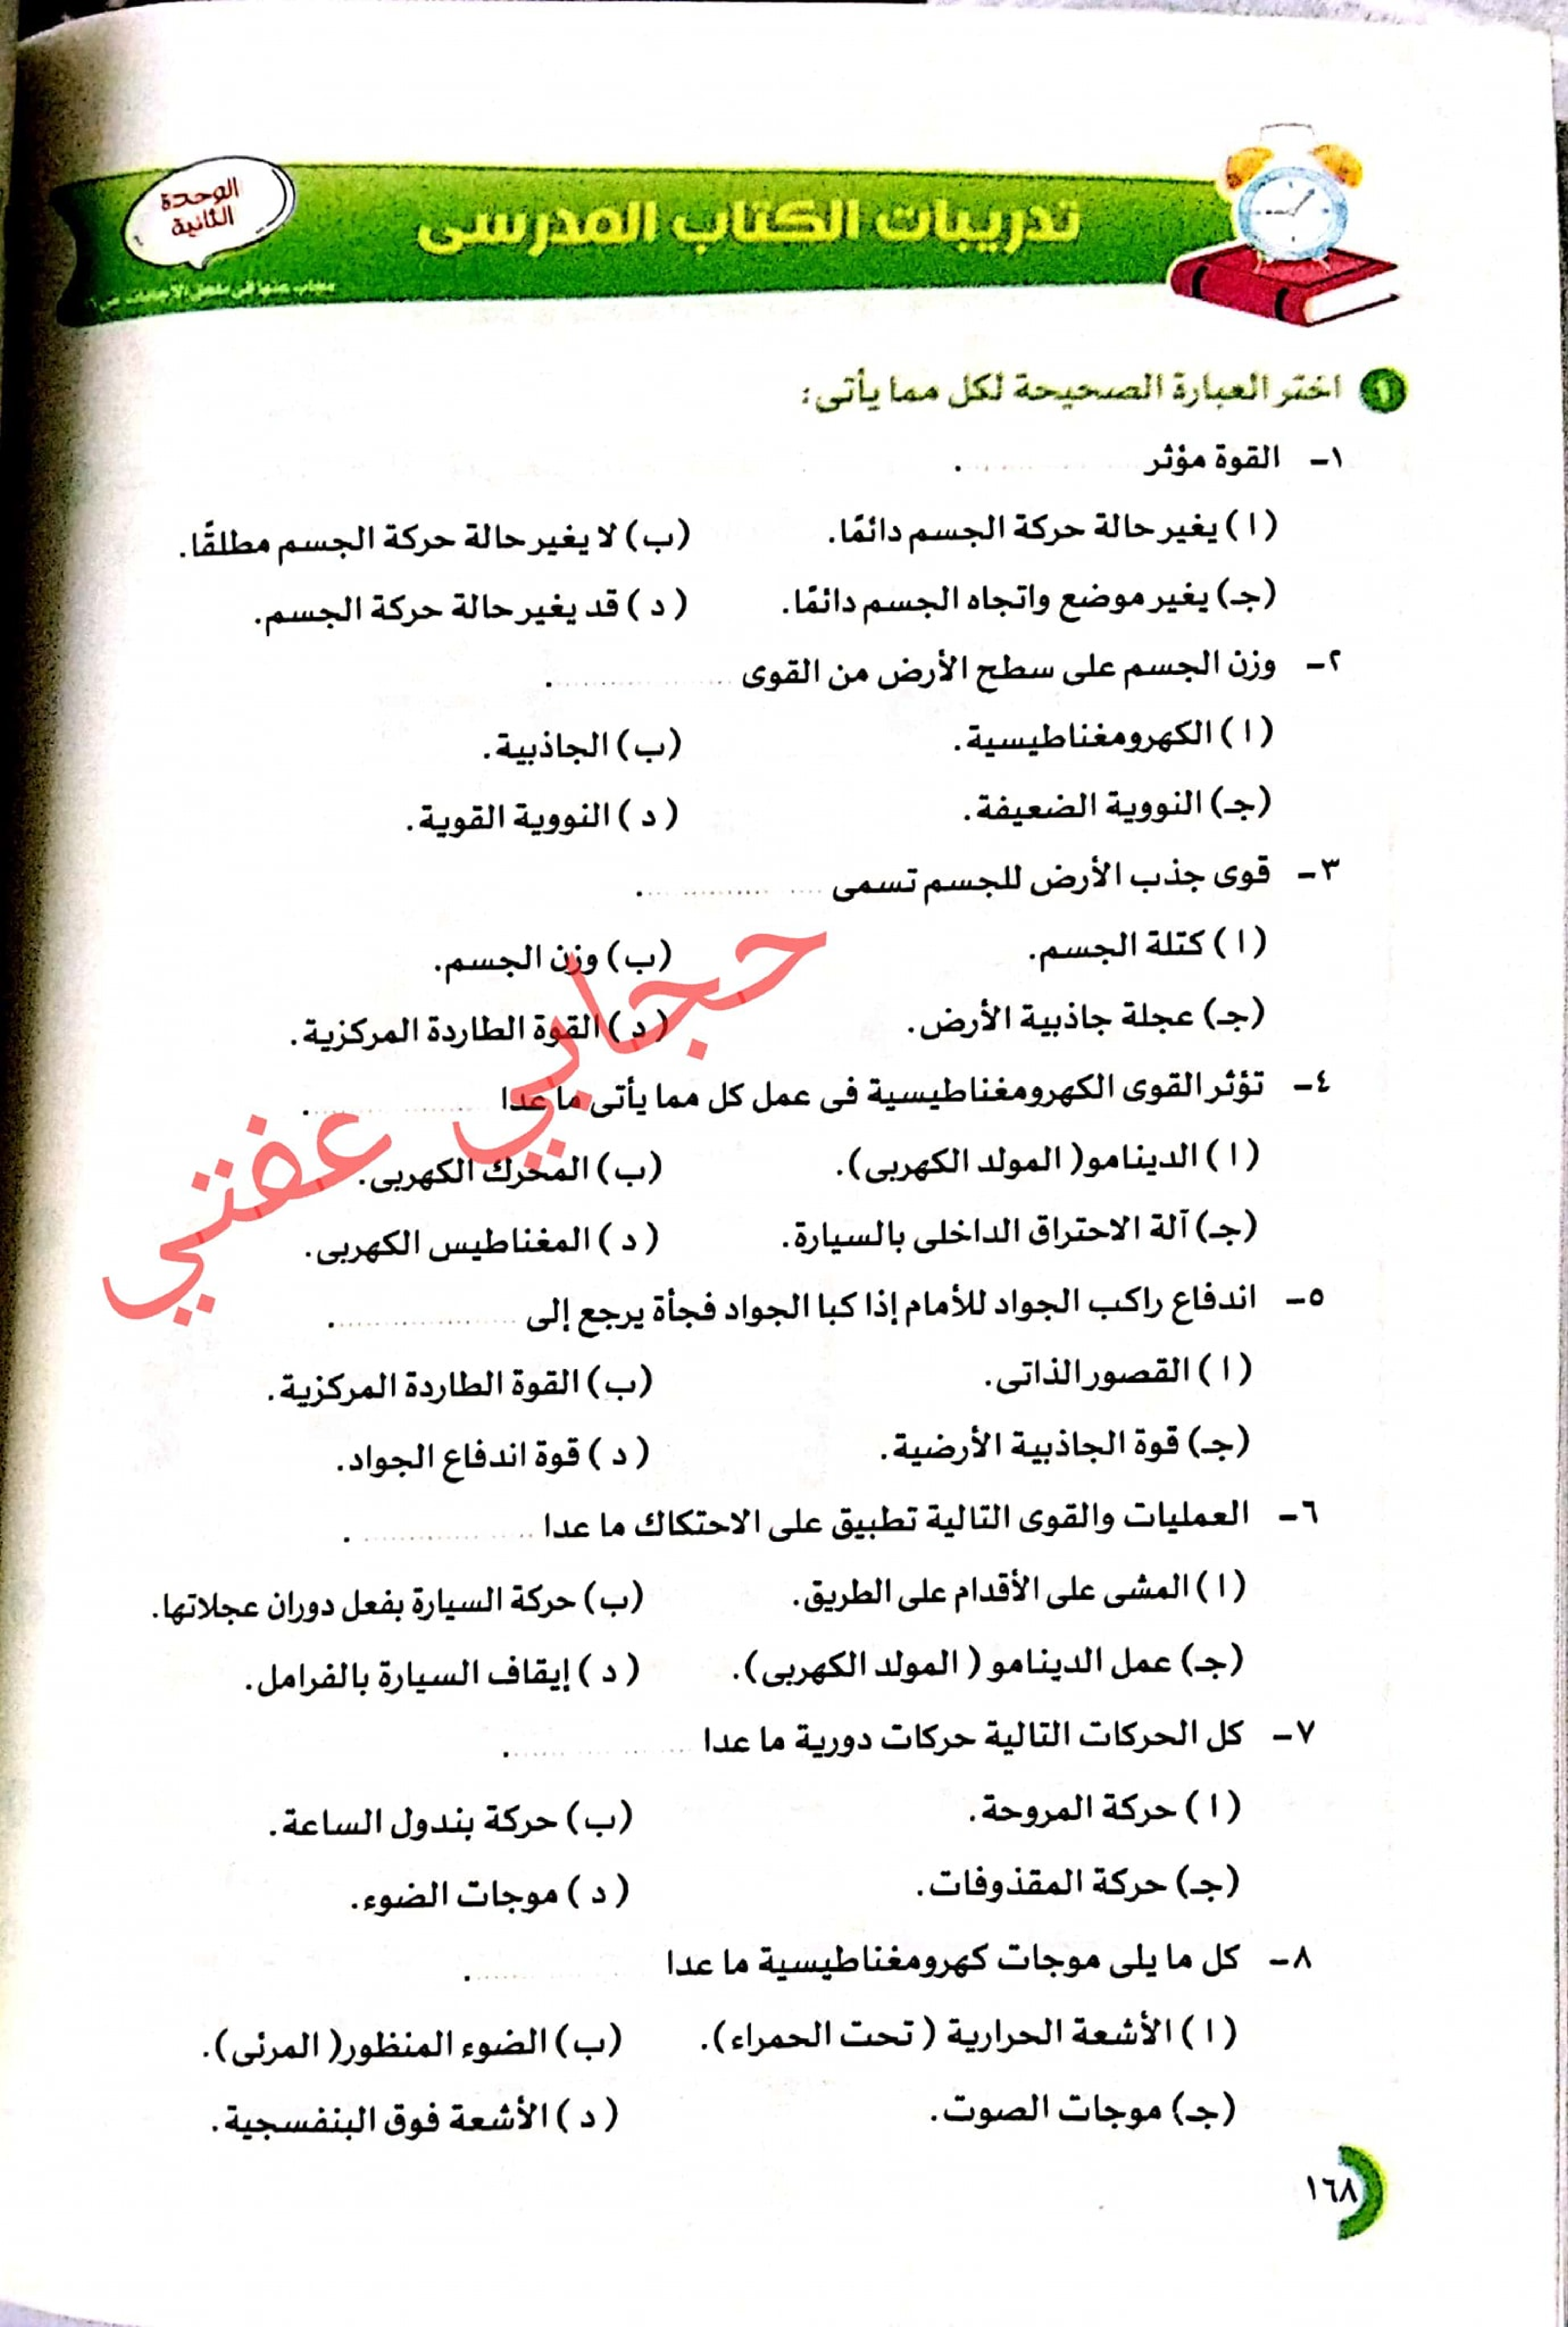 الوحدة
الثانية
تدريبات الكتاب المدرسى
مجاب عنها فى ملحق الإجابات
١ اختر العبارة الصحيحة لكل مما يأتى:
١- القوة مؤثر .............. .
(ا) يغير حالة حركة الجسم دائمًا. (ب) لا يغير حالة حركة الجسم مطلقًا.
(جـ) يغير موضع واتجاه الجسم دائمًا. (د) قد يغير حالة حركة الجسم.
٢- وزن الجسم على سطح الأرض من القوى .............. .
(ا) الكهرومغناطيسية. (ب) الجاذبية.
(جـ) النووية الضعيفة. (د) النووية القوية.
٣- قوى جذب الأرض للجسم تسمى .............. .
(ا) كتلة الجسم. (ب) وزن الجسم.
(جـ) عجلة جاذبية الأرض. (د) القوة الطاردة المركزية.
٤- تؤثر القوى الكهرومغناطيسية فى عمل كل مما يأتى ما عدا .............. .
(ا) الدينامو (المولد الكهربى). (ب) المحرك الكهربى.
(جـ) آلة الاحتراق الداخلى بالسيارة. (د) المغناطيس الكهربى.
٥- اندفاع راكب الجواد للأمام إذا كبا الجواد فجأة يرجع إلى .............. .
(ا) القصور الذاتى. (ب) القوة الطاردة المركزية.
(جـ) قوة الجاذبية الأرضية. (د) قوة اندفاع الجواد.
٦- العمليات والقوى التالية تطبيق على الاحتكاك ما عدا .............. .
(ا) المشى على الأقدام على الطريق. (ب) حركة السيارة بفعل دوران عجلاتها.
(جـ) عمل الدينامو (المولد الكهربى). (د) إيقاف السيارة بالفرامل.
٧- كل الحركات التالية حركات دورية ما عدا .............. .
(ا) حركة المروحة. (ب) حركة بندول الساعة.
(جـ) حركة المقذوفات. (د) موجات الضوء.
٨- كل ما يلى موجات كهرومغناطيسية ما عدا .............. .
(ا) الأشعة الحرارية (تحت الحمراء). (ب) الضوء المنظور (المرئى).
(جـ) موجات الصوت. (د) الأشعة فوق البنفسجية.
١٦٨
حجابي عفتي